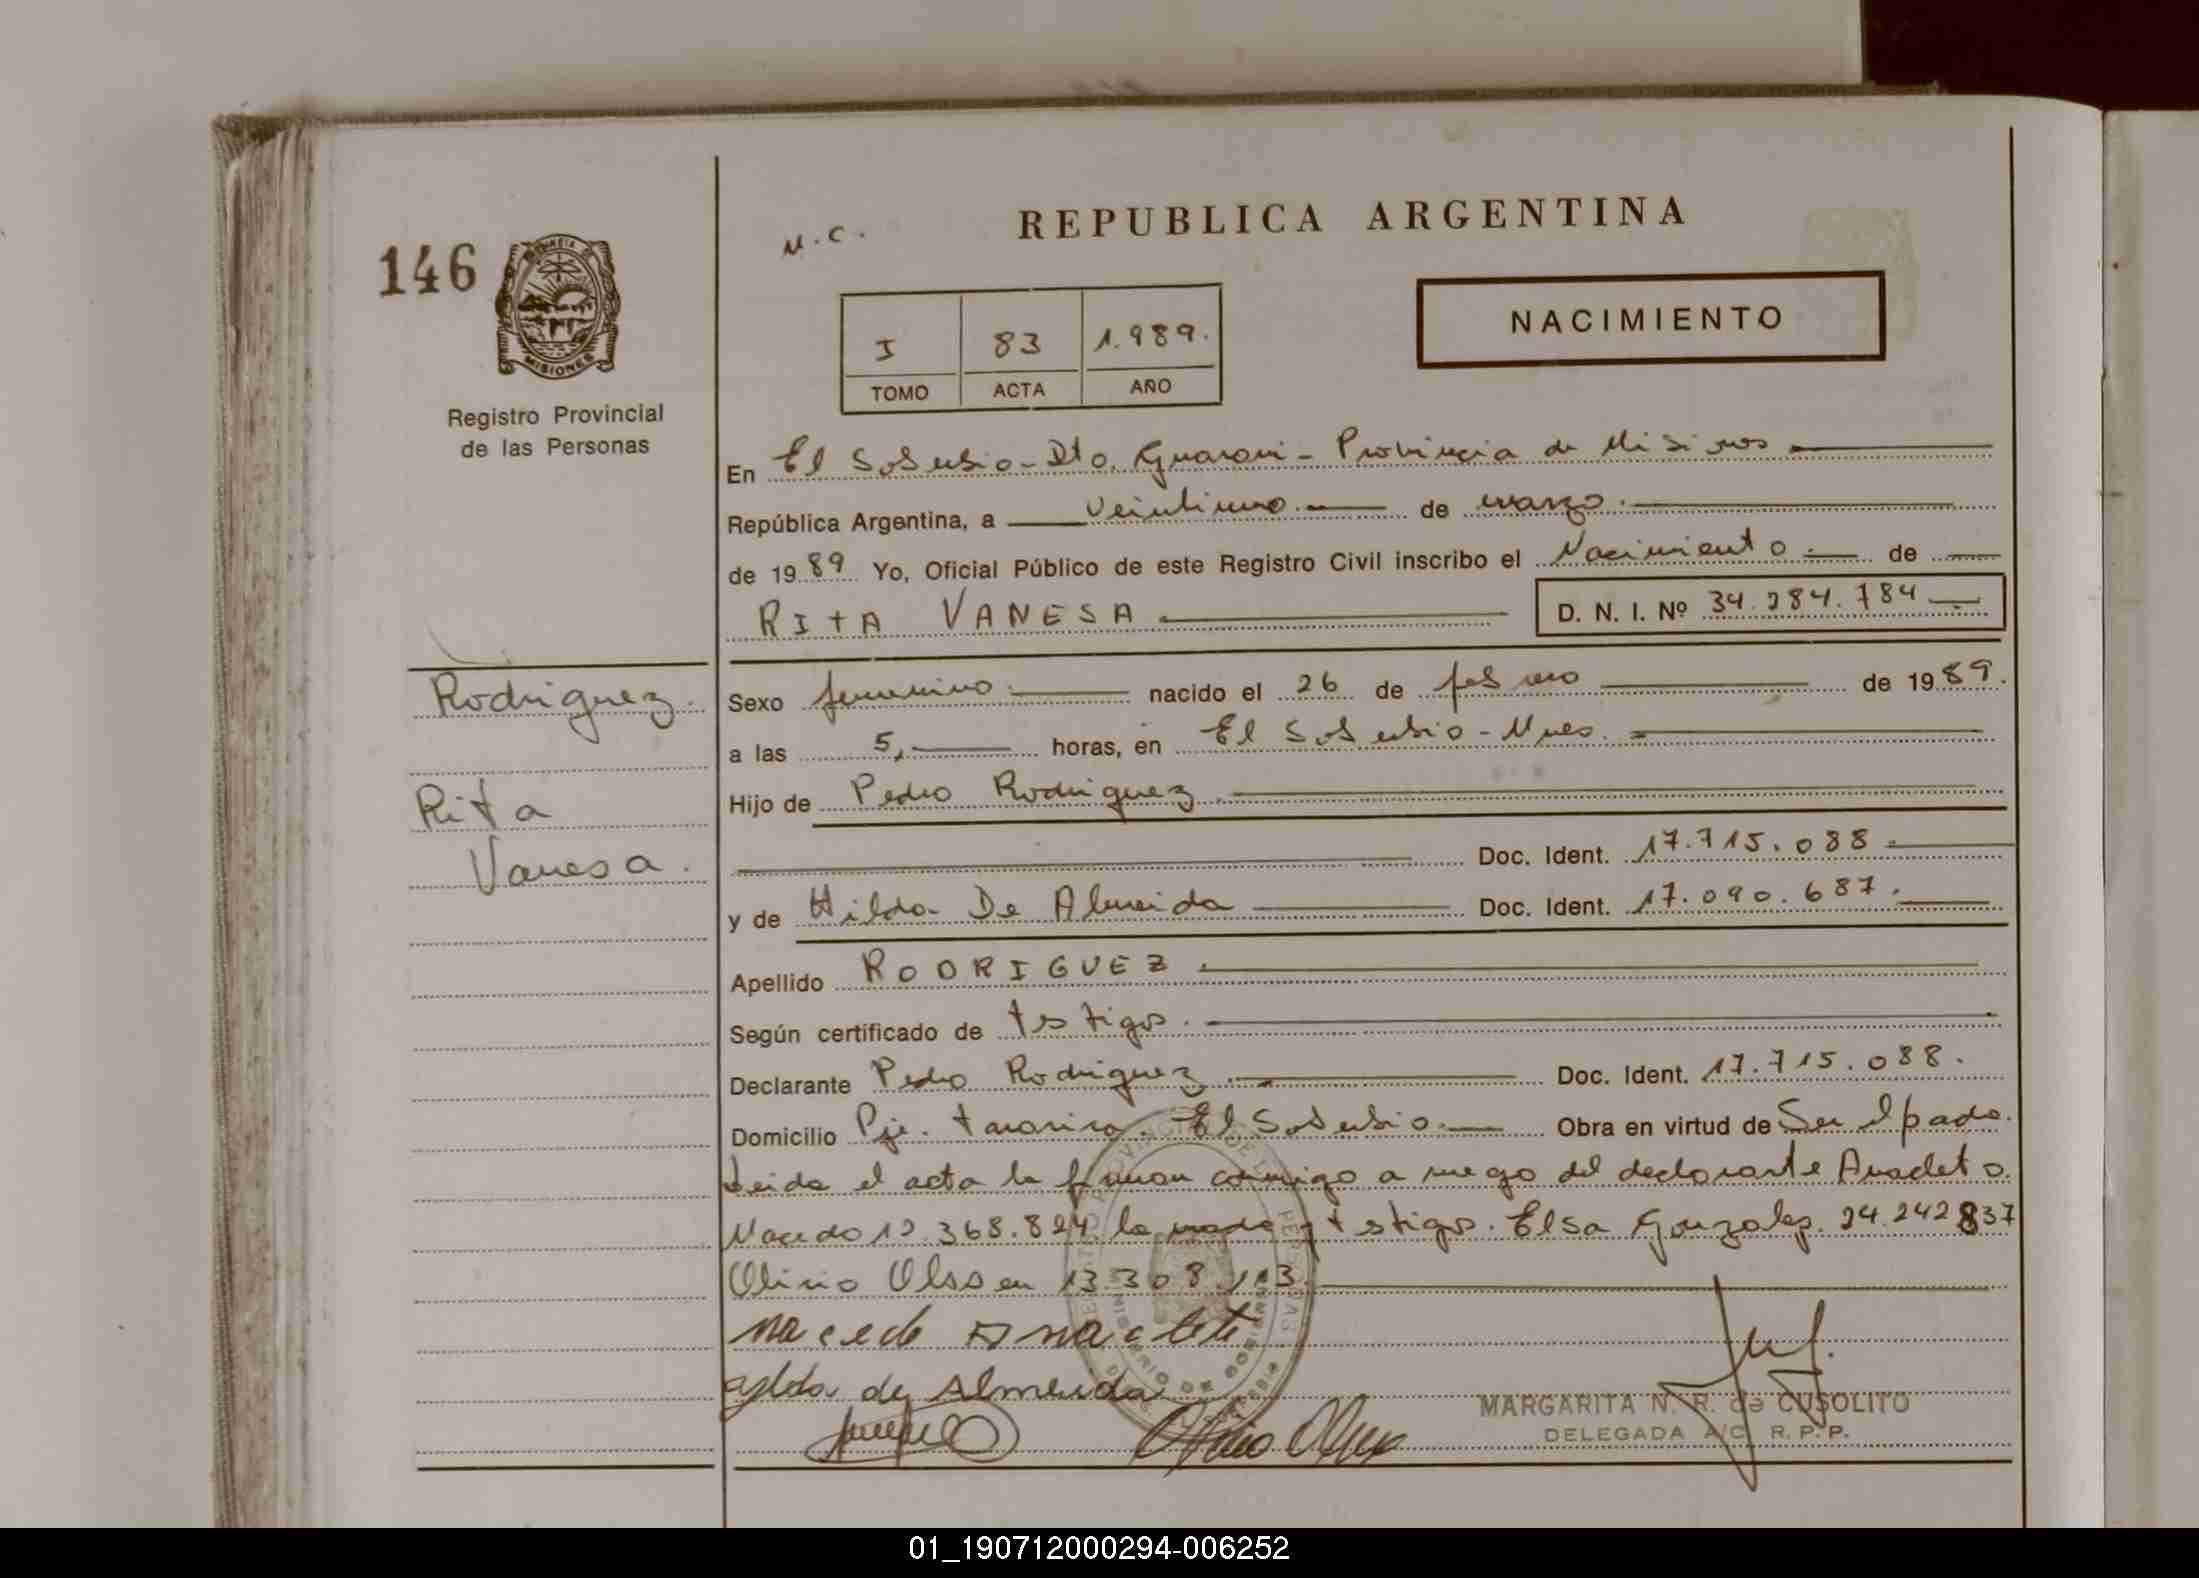 REPUBLICA ARGENTINA
146
N.C.
PROVINCIA DE
MISIONES
NACIMIENTO
I 83 1.989.
TOMO ACTA AÑO
Registro Provincial
de las Personas
En El Soberbio - Dto. Guarani - Provincia de Misiones
República Argentina, a veintiuno de marzo.
de 1989 Yo, Oficial Público de este Registro Civil inscribo el Nacimiento de
RITA VANESA D. N. I. Nº 34.284.784
Rodriguez.
Rita
Vanesa.
Sexo femenino nacido el 26 de febrero de 1989.
a las 5, horas, en El Soberbio - Mnes.
Hijo de Pedro Rodriguez
Doc. Ident. 17.715.088
y de Hilda De Almeida Doc. Ident. 17.090.687.
Apellido RODRIGUEZ
Según certificado de testigos.
Declarante Pedro Rodriguez Doc. Ident. 17.715.088.
Domicilio Pje. El Soberbio Obra en virtud de Ser el padre.
Leida el acta la firman conmigo a ruego del declarante Anacleto
Macedo 12.368.824 la madre y testigos. Elsa Gonzalez. 24.242.837
Olinio Olssen 13.308.113.
macedo Anacleto
de Almeida
MARGARITA N. R. de CUSOLITO
DELEGADA A/C R.P.P.
01_190712000294-006252